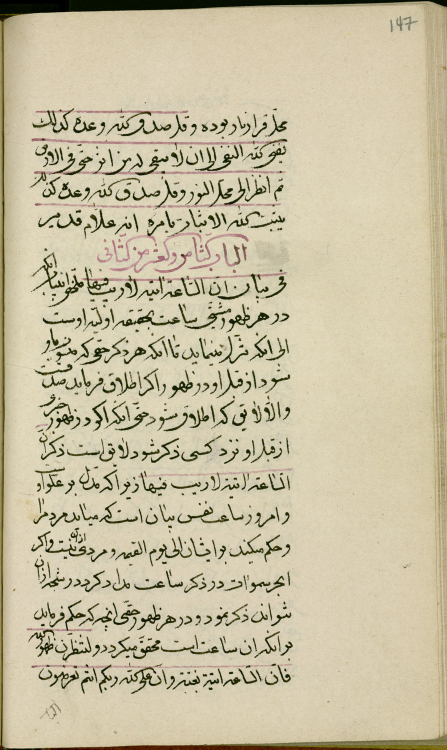 147
محل قرار نار بوده و قد صدق الله وعده كذلك
يقضى الله النفى الى ان لا يبقى له من اثر حتى فى الارض
ثم انظر الى محل النور و قد صدق الله وعده كذلك
يثبت الله الاثبات بامره انه علام قدير
الباب الثامن والعشر من الثانى
فى بيان ان الساعة اتية لا ريب فيها
در هر ظهور مشيتى ساعت بحقيقه اوليه اوست
الى انكه تنزل مينمايد تا انكه هر ذكر حقى كه منسوب باو
شود از قبل او در ظهور او اگر اطلاق فرمايد صدق است
والا لايق كه اطلاق شود حتى انكه اگر در ظهور
از قبل او نزد كسى ذكر شود لايق است ذكر ان
الساعة اتية لا ريب فيها زيرا كه تدل بر علو او
و امروز ساعت نفس بيان است كه ميايد مردم را
و حكم ميكند بر ايشان الى يوم القيمة و
ابحر سموات در ذكر ساعت مداد كردد
تواند ذكر نمود و در هر ظهور حقى انچه كه حكم فرمايد
بر انكه ان ساعت است محقق ميكردد و لتنتظرن ظهور الله
فان الساعة اتية بغتة و ان على الله ربكم انتم تعرضون